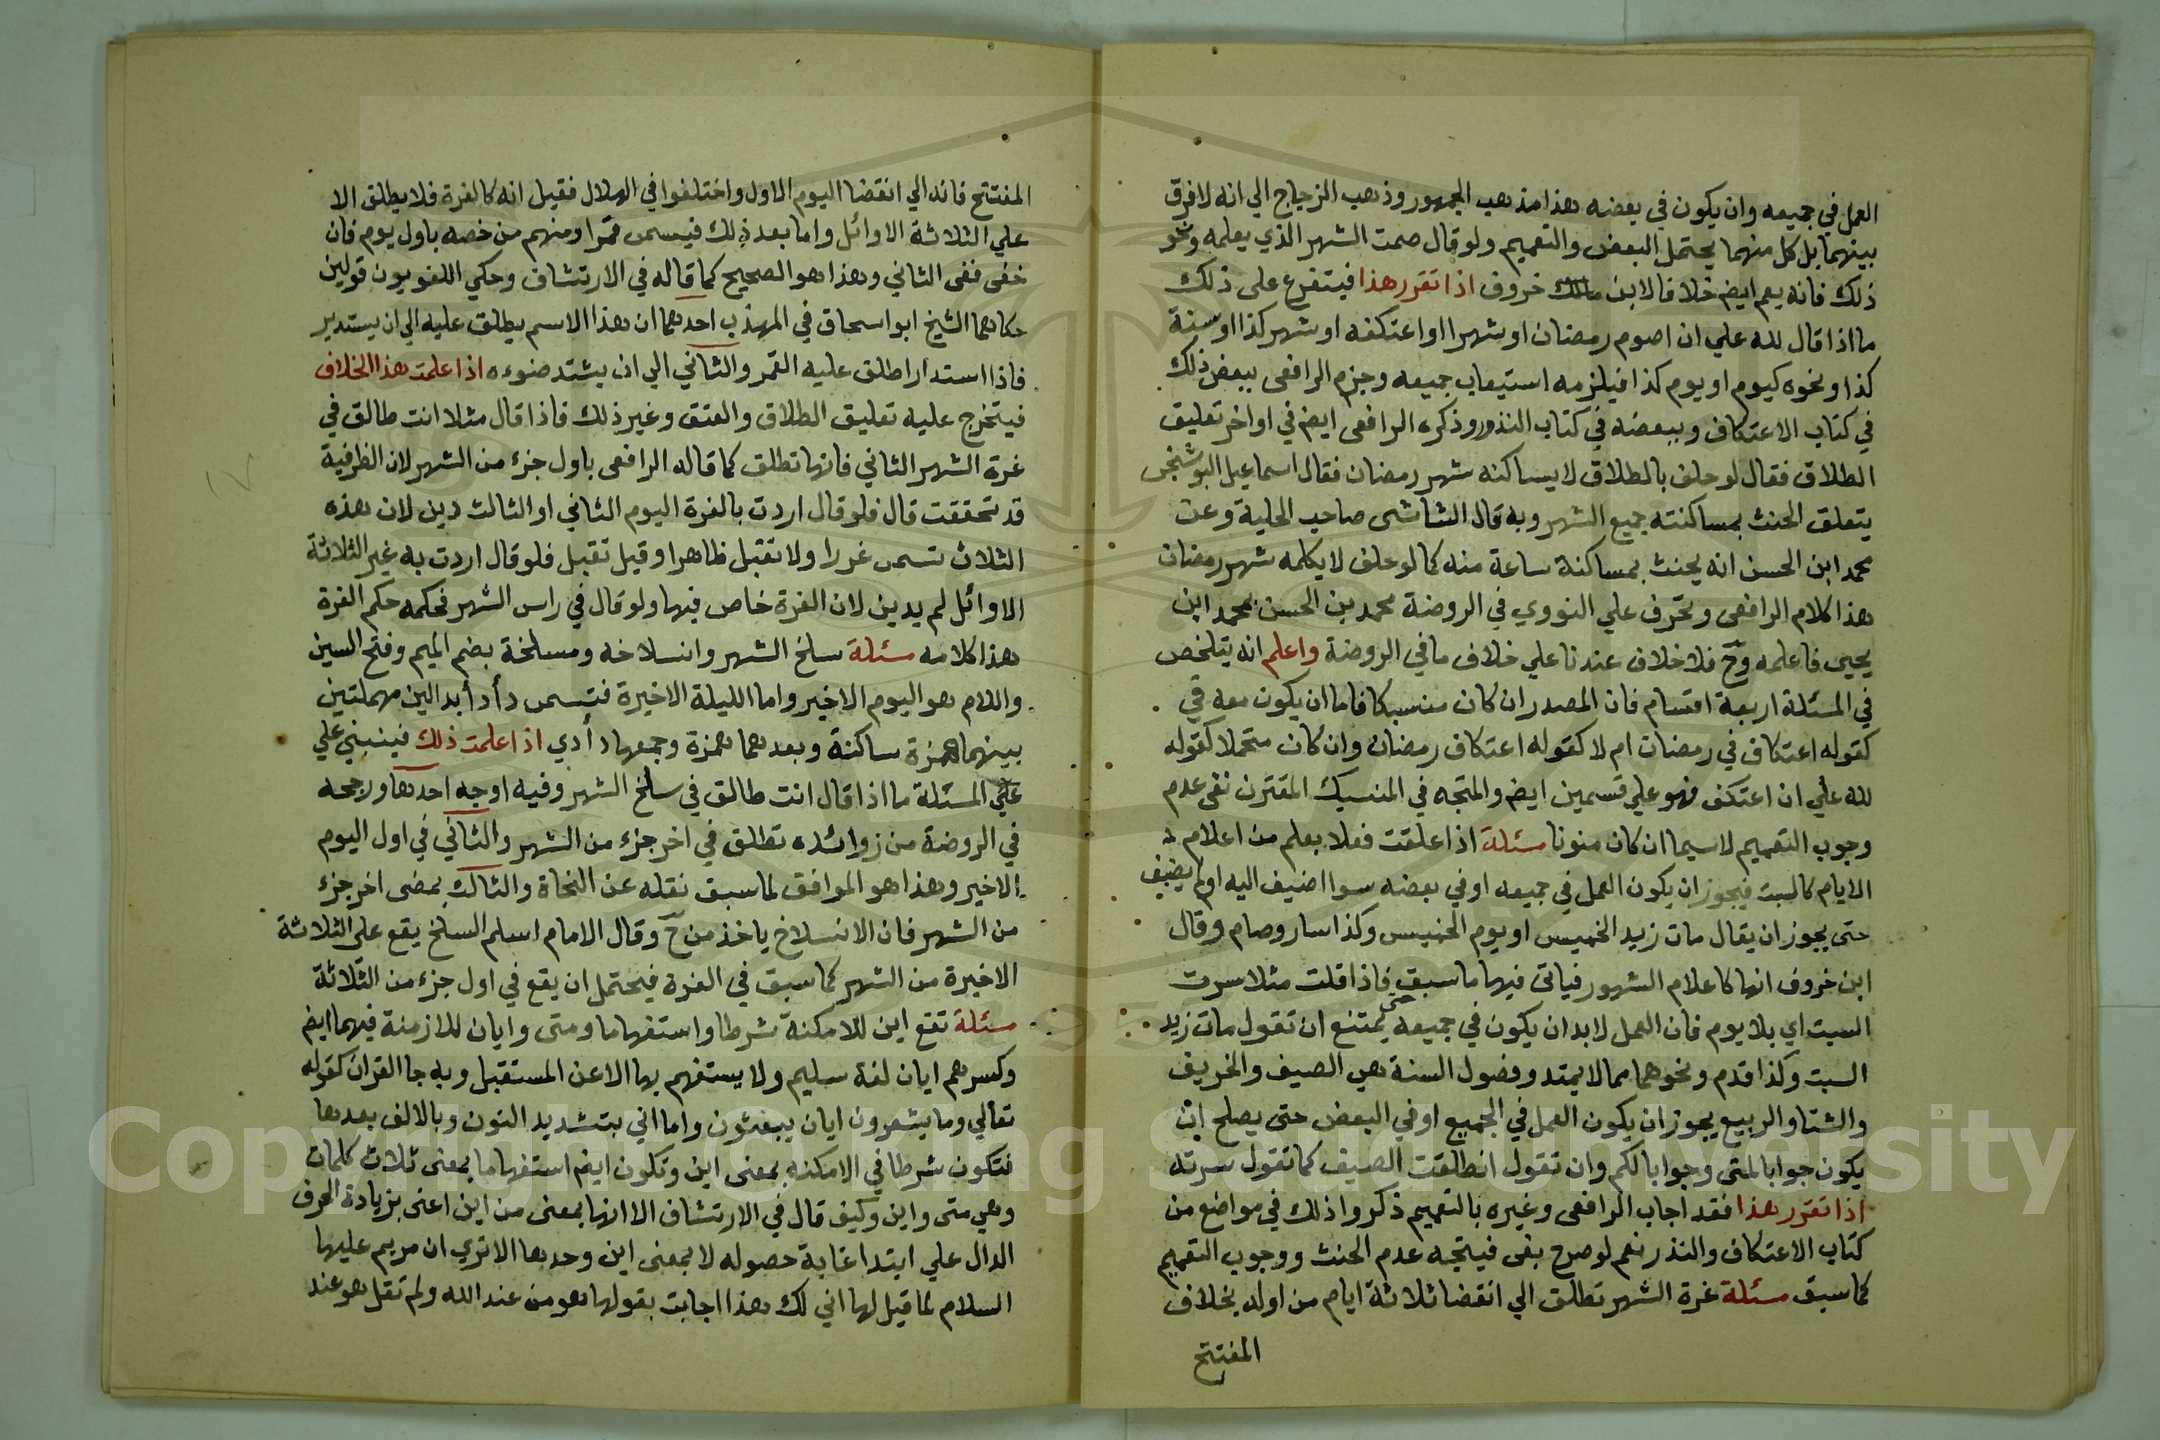 العمل في جميعه وان يكون في بعضه هذا مذهب الجمهور وذهب الزجاج الي انه لا فرق
بينهما بل كل منهما يحتمل البعض والتعميم ولو قال صمت الشهر الذي يعلمه ونحو
ذلك فانه يعم ايضم خلافا لابن خروف اذا تقرر هذا فيتفرع على ذلك
ما اذا قال لله علي ان اصوم رمضان او شهرا او اعتكفه او شهر كذا او سنة
كذا ونحوه كيوم او يوم كذا فيلزمه استيعاب جميعه وجزم الرافعى ببعض ذلك
في كتاب الاعتكاف وببعضه في كتاب النذور وذكره الرافعى ايضم في اواخر تعليق
الطلاق فقال لو حلف بالطلاق لا يساكنه شهر رمضان فقال اسماعيل البوشنجى
يتعلق الحنث بمساكنته جميع الشهر وبه قال الشاشى صاحب الحلية وعن
محمد ابن الحسن انه يحنث بمساكنة ساعة منه كما لو حلف لا يكلمه شهر رمضان
هذا كلام الرافعى وتحرف علي النووي في الروضة محمد بن الحسن بمحمد ابن
يحيي فاعلمه وح فلا خلاف عندنا علي خلاف ما في الروضة واعلم انه يتلخص
في المسئلة اربعة اقسام فان المصدر ان كان منسبكا فاما ان يكون معه في
كقوله اعتكاف في رمضان ام لا كقوله اعتكاف رمضان وان كان متحملا كقوله
لله علي ان اعتكف فهو علي قسمين ايضم والمتجه في المنسبك المقترن بفى عدم
وجوب التعميم لاسيما ان كان منونا مسئلة اذا علقت فعلا بعلم من اعلام
الايام كالسبت فيجوز ان يكون العمل في جميعه او في بعضه سوا اضيف اليه او لم يضف
حتى يجوز ان يقال مات زيد الخميس او يوم الخميس وكذا سار وصام وقال
ابن خروف انها كاعلام الشهور فياتى فيها ما سبق فاذا قلت مثلا سرت
السبت اي بلا يوم فان العمل لابد ان يكون في جميعه حتى يمتنع ان تقول مات زيد
السبت وكذا قدم ونحوهما مما لا يمتد وفصول السنة هي الصيف والخريف
والشتا والربيع يجوز ان يكون العمل في الجميع او في البعض حتى يصلح ان
يكون جوابا لمتى وجوابا لكم وان تقول انطلقت الصيف كما تقول سرته
اذا تقرر هذا فقد اجاب الرافعى وغيره بالتعميم ذكروا ذلك في مواضع من
كتاب الاعتكاف والنذر نعم لو صرح بفى فيتجه عدم الحنث ووجوب التعميم
كما سبق مسئلة غرة الشهر تطلق الي انقضا ثلاثة ايام من اوله بخلاف
المفتتح
المفتتح فانه الي انقضا اليوم الاول واختلفوا في الهلال فقيل انه كالغرة فلا يطلق الا
علي الثلاثة الاوائل واما بعد ذلك فيسمى قمرا ومنهم من خصه باول يوم فان
خفى ففى الثاني وهذا هو الصحيح كما قاله في الارتشاف وحكي اللغويون قولين
حكاهما الشيخ ابو اسحاق في المهذب احدهما ان هذا الاسم يطلق عليه الي ان يستدير
فاذا استدار اطلق عليه القمر والثاني الي ان يشتد ضوءه اذا علمت هذا الخلاف
فيتخرج عليه تعليق الطلاق والعتق وغير ذلك فاذا قال مثلا انت طالق في
غرة الشهر الثاني فانها تطلق كما قاله الرافعى باول جزء من الشهر لان الظرفية
قد تحققت قال فلو قال اردت بالغرة اليوم الثاني او الثالث دين لان هذه
الثلاث تسمى غررا ولا تقبل ظاهرا وقيل تقبل فلو قال اردت به غير الثلاثة
الاوائل لم يدين لان الغرة خاص فيها ولو قال في راس الشهر فحكمه حكم الغرة
هذا كلامه مسئلة سلخ الشهر وانسلاخه ومسلخة بضم الميم وفتح السين
واللام هو اليوم الاخير واما الليلة الاخيرة فتسمى دأدأ بدالين مهملتين
بينهما همزة ساكنة وبعدهما همزة وجمعها دأدي اذا علمت ذلك فينبني علي
علي المسئلة ما اذا قال انت طالق في سلخ الشهر وفيه اوجه احدها ورجحه
في الروضة من زوائده تطلق في اخر جزء من الشهر والثاني في اول اليوم
الاخير وهذا هو الموافق لما سبق نقله عن النحاة والثالث بمضى اخر جزء
من الشهر فان الانسلاخ ياخذ من ح وقال الامام اسلم السلخ يقع على الثلاثة
الاخيرة من الشهر كما سبق في الغرة فيحتمل ان يقع في اول جزء من الثلاثة
مسئلة تقع اين للامكنة شرطا واستفهاما ومتى وايان للازمنة فيهما ايضم
وكسر همزة ايان لغة سليم ولا يستفهم بها الا عن المستقبل وبه جا القران كقوله
تعالي وما يشعرون ايان يبعثون واما اني بتشديد النون وبالالف بعدها
فتكون شرطا في الامكنه بمعنى اين وتكون ايضم استفهاما بمعنى ثلاث كلمات
وهي متى واين وكيف قال في الارتشاف الا انها بمعنى من اين اعنى بزيادة الحرف
الدال علي ابتدا غاية حصوله لا بمعنى اين وحدها الا تري ان مريم عليها
السلام لما قيل لها اني لك هذا اجابت بقولها هو من عند الله ولم تقل هو عند
Copyright © King Saud University